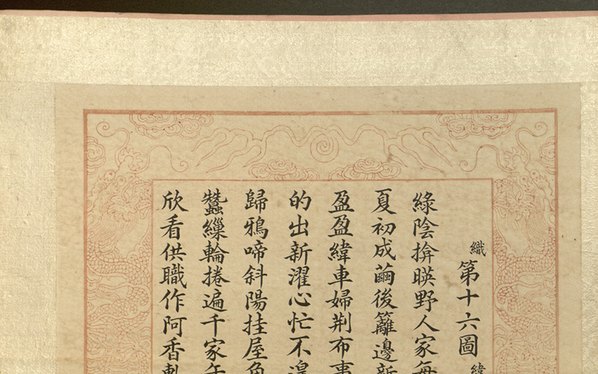 織第十六圖緯
綠陰揜暎野人家每
夏初成繭後籬邊新
盈盈緯車婦荆布事
的出新濯心忙不遑
歸鴉啼斜陽挂屋角
蠶繅輪捲遍千家
欣看供職作阿香